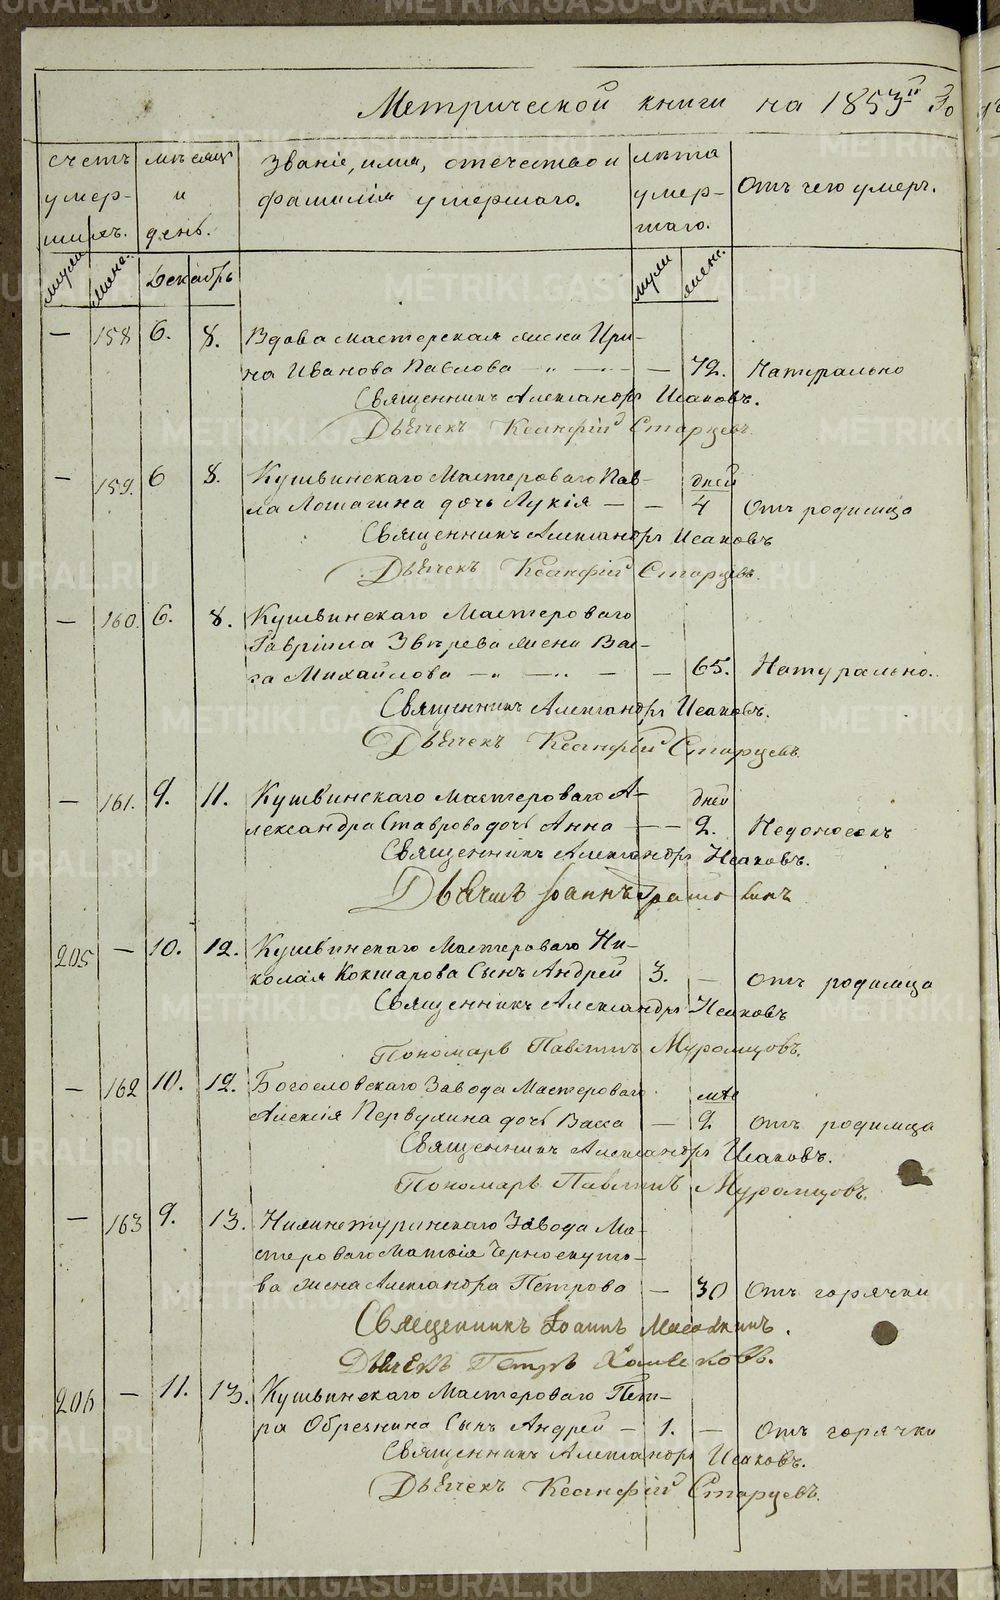 Метрической книги на 1853й го
счетъ умер- шихъ.
мѣсяцъ и день.
Званіе, имя, отечество и фамилія умершаго.
лѣта умер- шаго.
Отъ чего умеръ.
муж. женс. Декабрь муж. женс.
— 158 6. 8. Вдова мастерская жена Ири-
на Иванова Павлова — „ — — 72. Натурально
Священникъ Александръ Исаковъ.
Дьячекъ Ксанфій Старцевъ.
— 159. 6 8. Кушвинскаго Мастероваго Пав- дней
ла Лотагина дочь Лукія — — 4 Отъ родимца
Священникъ Александръ Исаковъ
Дьячекъ Ксанфій Старцевъ.
— 160. 6. 8. Кушвинскаго Мастероваго
Гавріила Звѣрева жена Вас-
са Михайлова — „ — „ — — 65. Натурально.
Священникъ Александръ Исаковъ.
Дьячекъ Ксанфій Старцевъ.
— 161. 9. 11. Кушвинскаго мастероваго А- дней
лександра Ставрова дочь Анна — — 2. Недоносокъ
Священникъ Александръ Исаковъ.
Дьячекъ Іоаннъ
205 — 10. 12. Кушвинскаго Мастероваго Ни-
колая Кокшарова Сынъ Андрей 3. — отъ родимца
Священникъ Александръ Исаковъ
Пономарь Павлинъ Муромцовъ.
— 162 10. 12. Богословскаго Завода Мастероваго мѣс
Алексія Первухина дочь Васса — 2 отъ родимца
Священникъ Александръ Исаковъ.
Пономарь Павлинъ Муромцовъ.
— 163 9. 13. Нижнетуринскаго Завода Ма-
стероваго Матвія Черноскуто-
ва жена Александра Петрова — 30 Отъ горячки
Священникъ Іоаннъ
Дьячекъ Петръ Хомяковъ.
206 — 11. 13. Кушвинскаго Мастероваго Пет-
ра Обрезнина Сынъ Андрей — 1. — Отъ горячки
Священникъ Александръ Исаковъ.
Дьячекъ Ксанфій Старцевъ.
METRIKI.GASU-URAL.RU